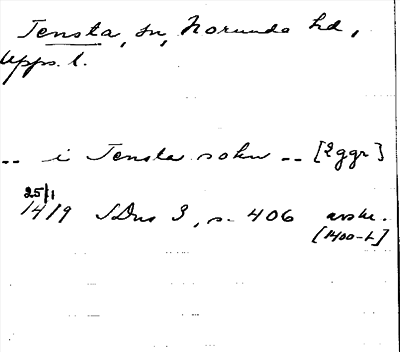 Tensta, sn, Norunda hd,
Upps. l.
-- i Tensta sokn -- [2 ggr]
25/1
1419 SDns 3, s. 406 avskr.
[1400-t]